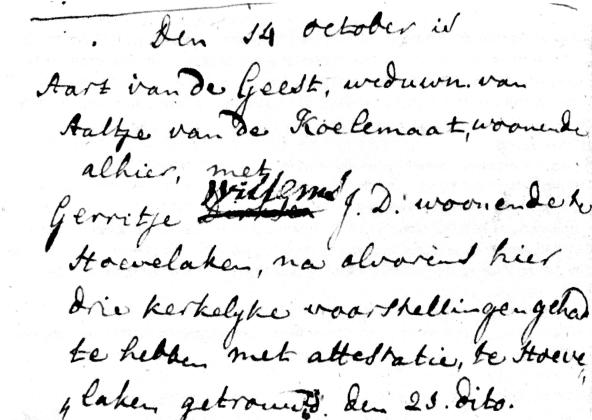 Den 14 october is
Aart van de Geest, weduwn. van
Aaltje van de Koelemaat, woonende
alhier, met
Willems
Gerritje Dirksen J. D: woonende te
Hoevelaken, na alvorens hier
drie kerkelyke voorstellingen gehad
te hebben met attestatie, te Hoeve„
„laken getrouwd. den 23. dito.